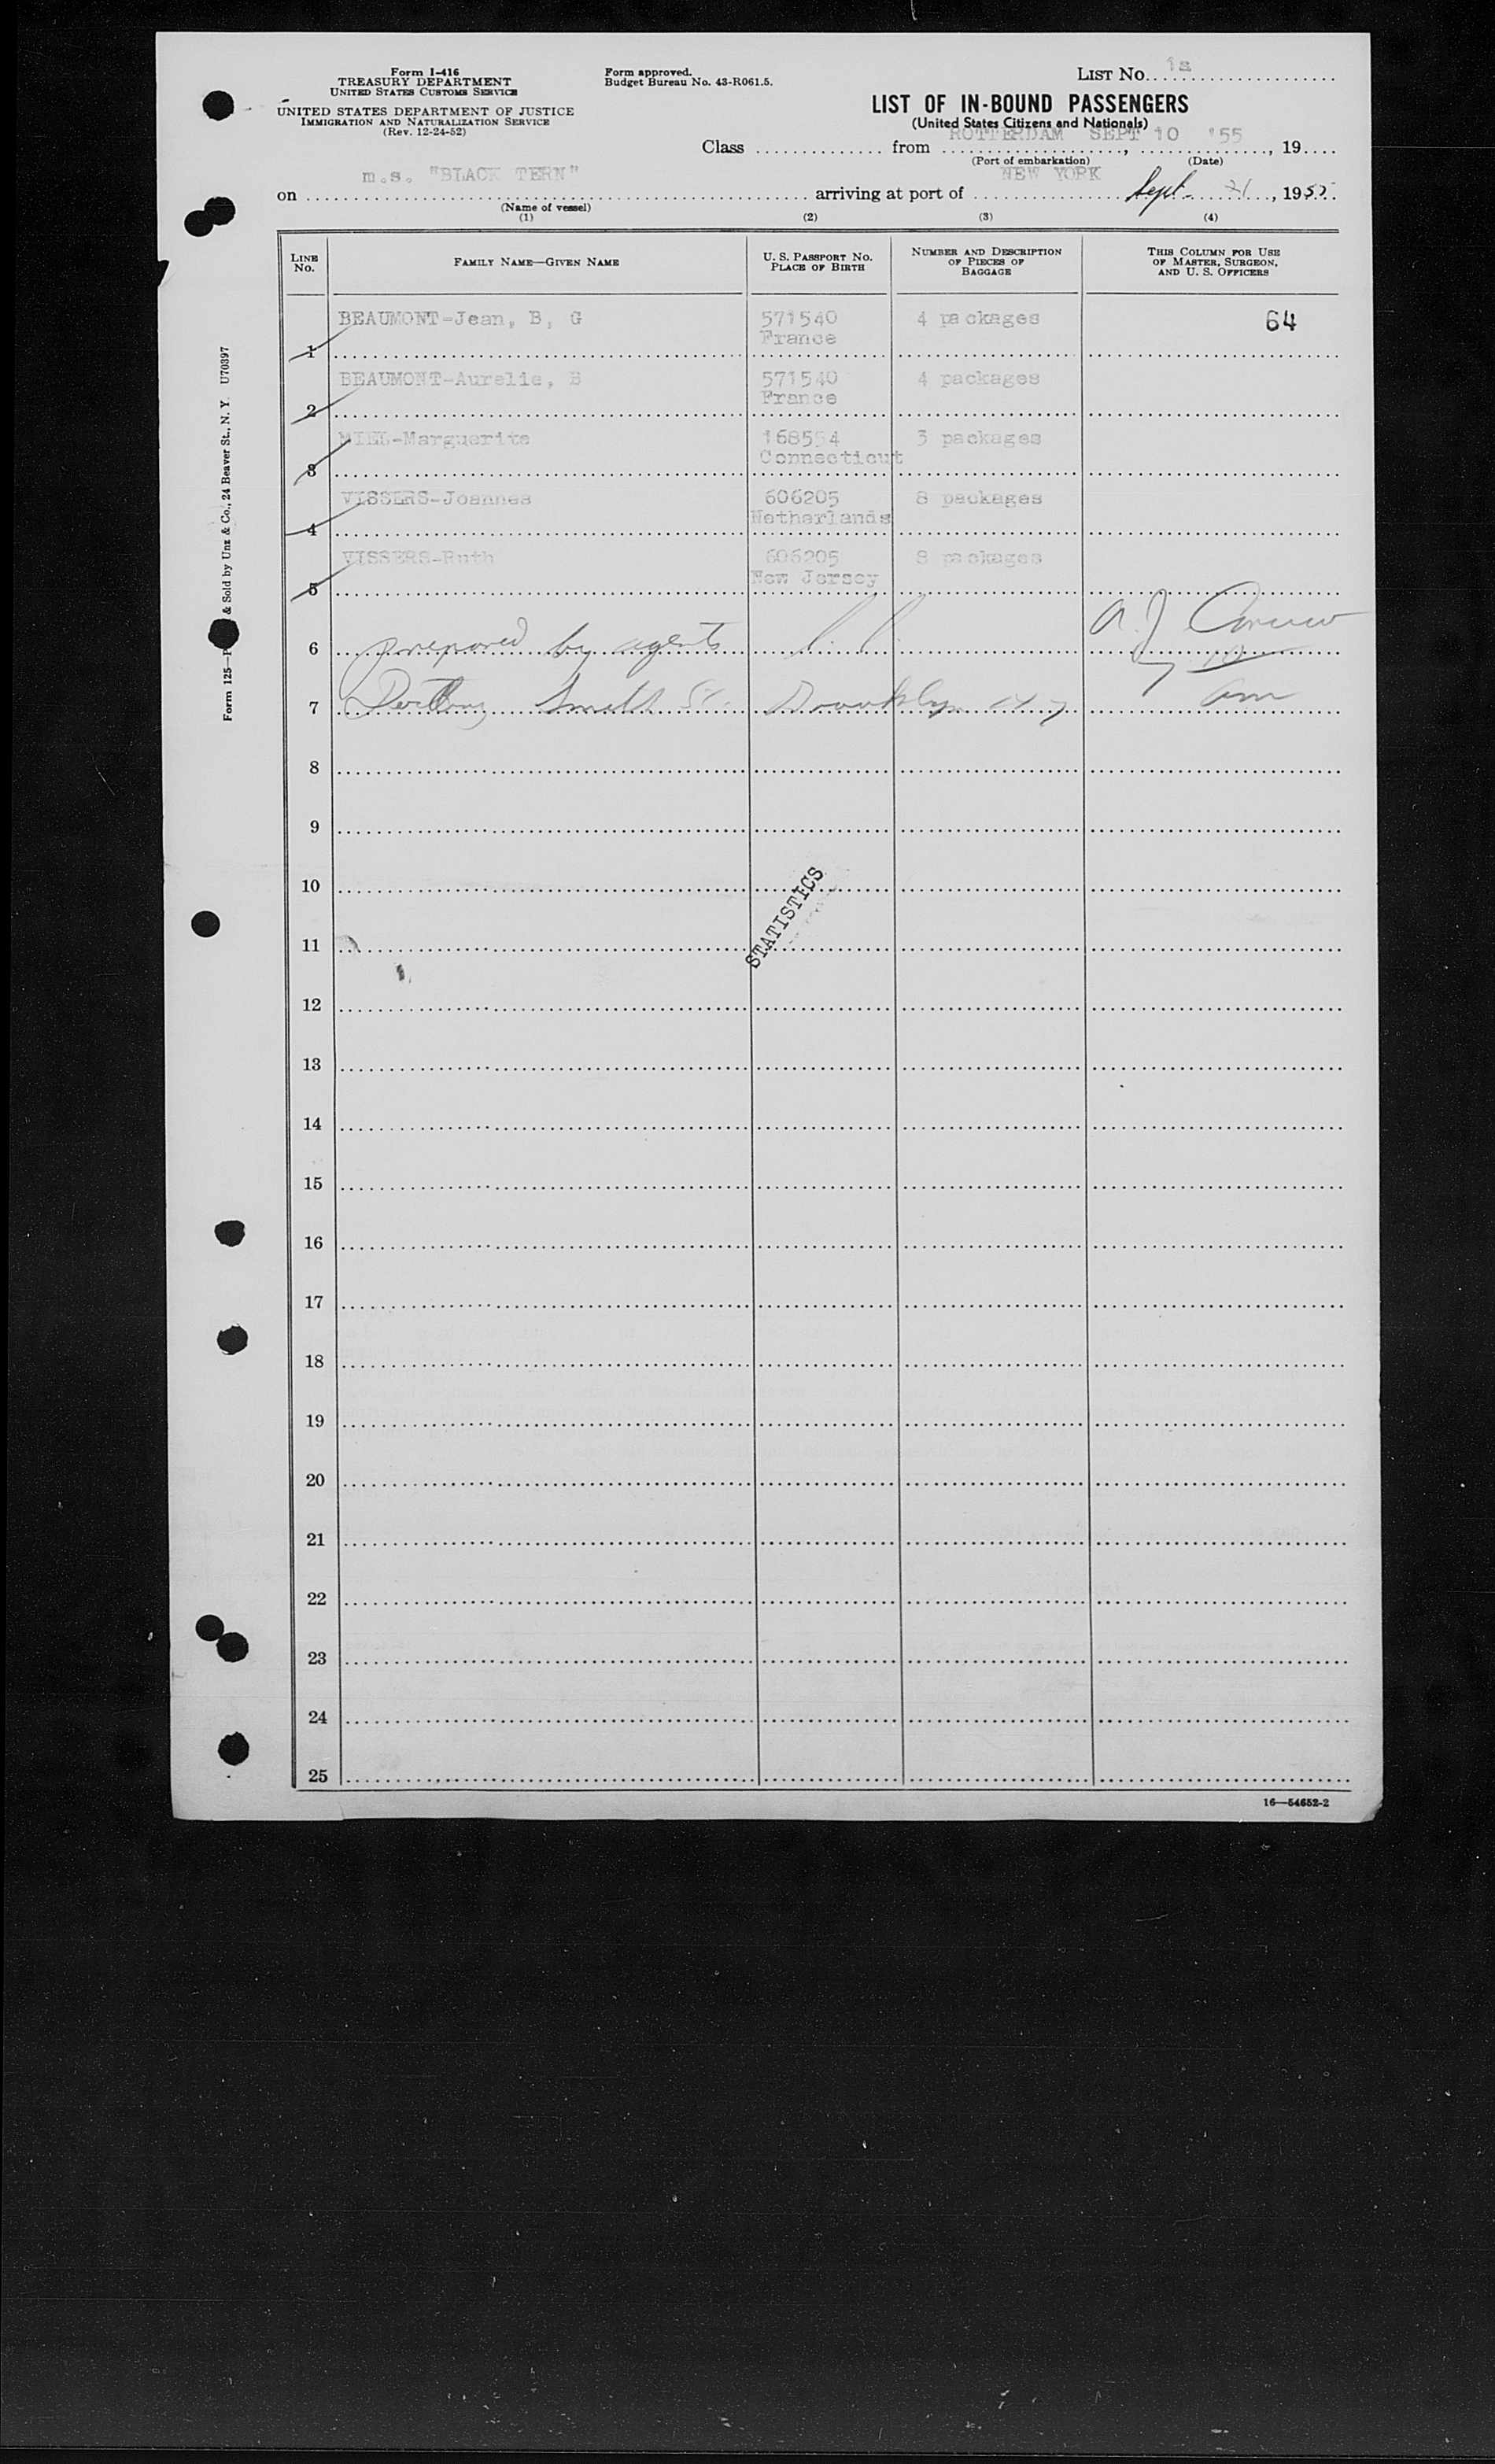 Form I-416
TREASURY DEPARTMENT
UNITED STATES CUSTOMS SERVICE
UNITED STATES DEPARTMENT OF JUSTICE
IMMIGRATION AND NATURALIZATION SERVICE
(Rev. 12-24-52)
Form approved.
Budget Bureau No. 43-R061.5.
LIST No. 1a
LIST OF IN-BOUND PASSENGERS
(United States Citizens and Nationals)
Class from ROTTERDAM, SEPT 10 '55, 19
(Port of embarkation) (Date)
on m.s. "BLACK TERN" arriving at port of NEW YORK Sept. 21, 1955.
(Name of vessel)
(1) (2) (3) (4)
LINE No. FAMILY NAME—GIVEN NAME U. S. PASSPORT No. PLACE OF BIRTH NUMBER AND DESCRIPTION OF PIECES OF BAGGAGE THIS COLUMN FOR USE OF MASTER, SURGEON, AND U. S. OFFICERS
1 BEAUMONT-Jean, B, G 571540 4 packages 64
France
2 BEAUMONT-Aurelie, B 571540 4 packages
France
3 MIEL-Marguerite 168554 3 packages
Connecticut
4 VISSERS-Joannes 606205 8 packages
Netherlands
5 VISSERS-Ruth 606205 8 packages
New Jersey
6 prepared by agents
7 Smith St. Brooklyn N Y
8
9
10
STATISTICS
11
12
13
14
15
16
17
18
19
20
21
22
23
24
25
16—54652-2
Form 125— & Sold by Unz & Co., 24 Beaver St., N. Y. U70397